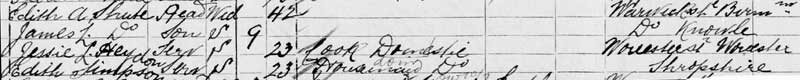 Edith A Shute Head Wid 42 Warwicksh Birmm
James J. Do Son S 9 Do Knowle
Jessie L Heydon Serv S 23 Cook Domestic Worcestersh Worcester
Edith Simpson Serv S 23 Housemaid Do Shropshire